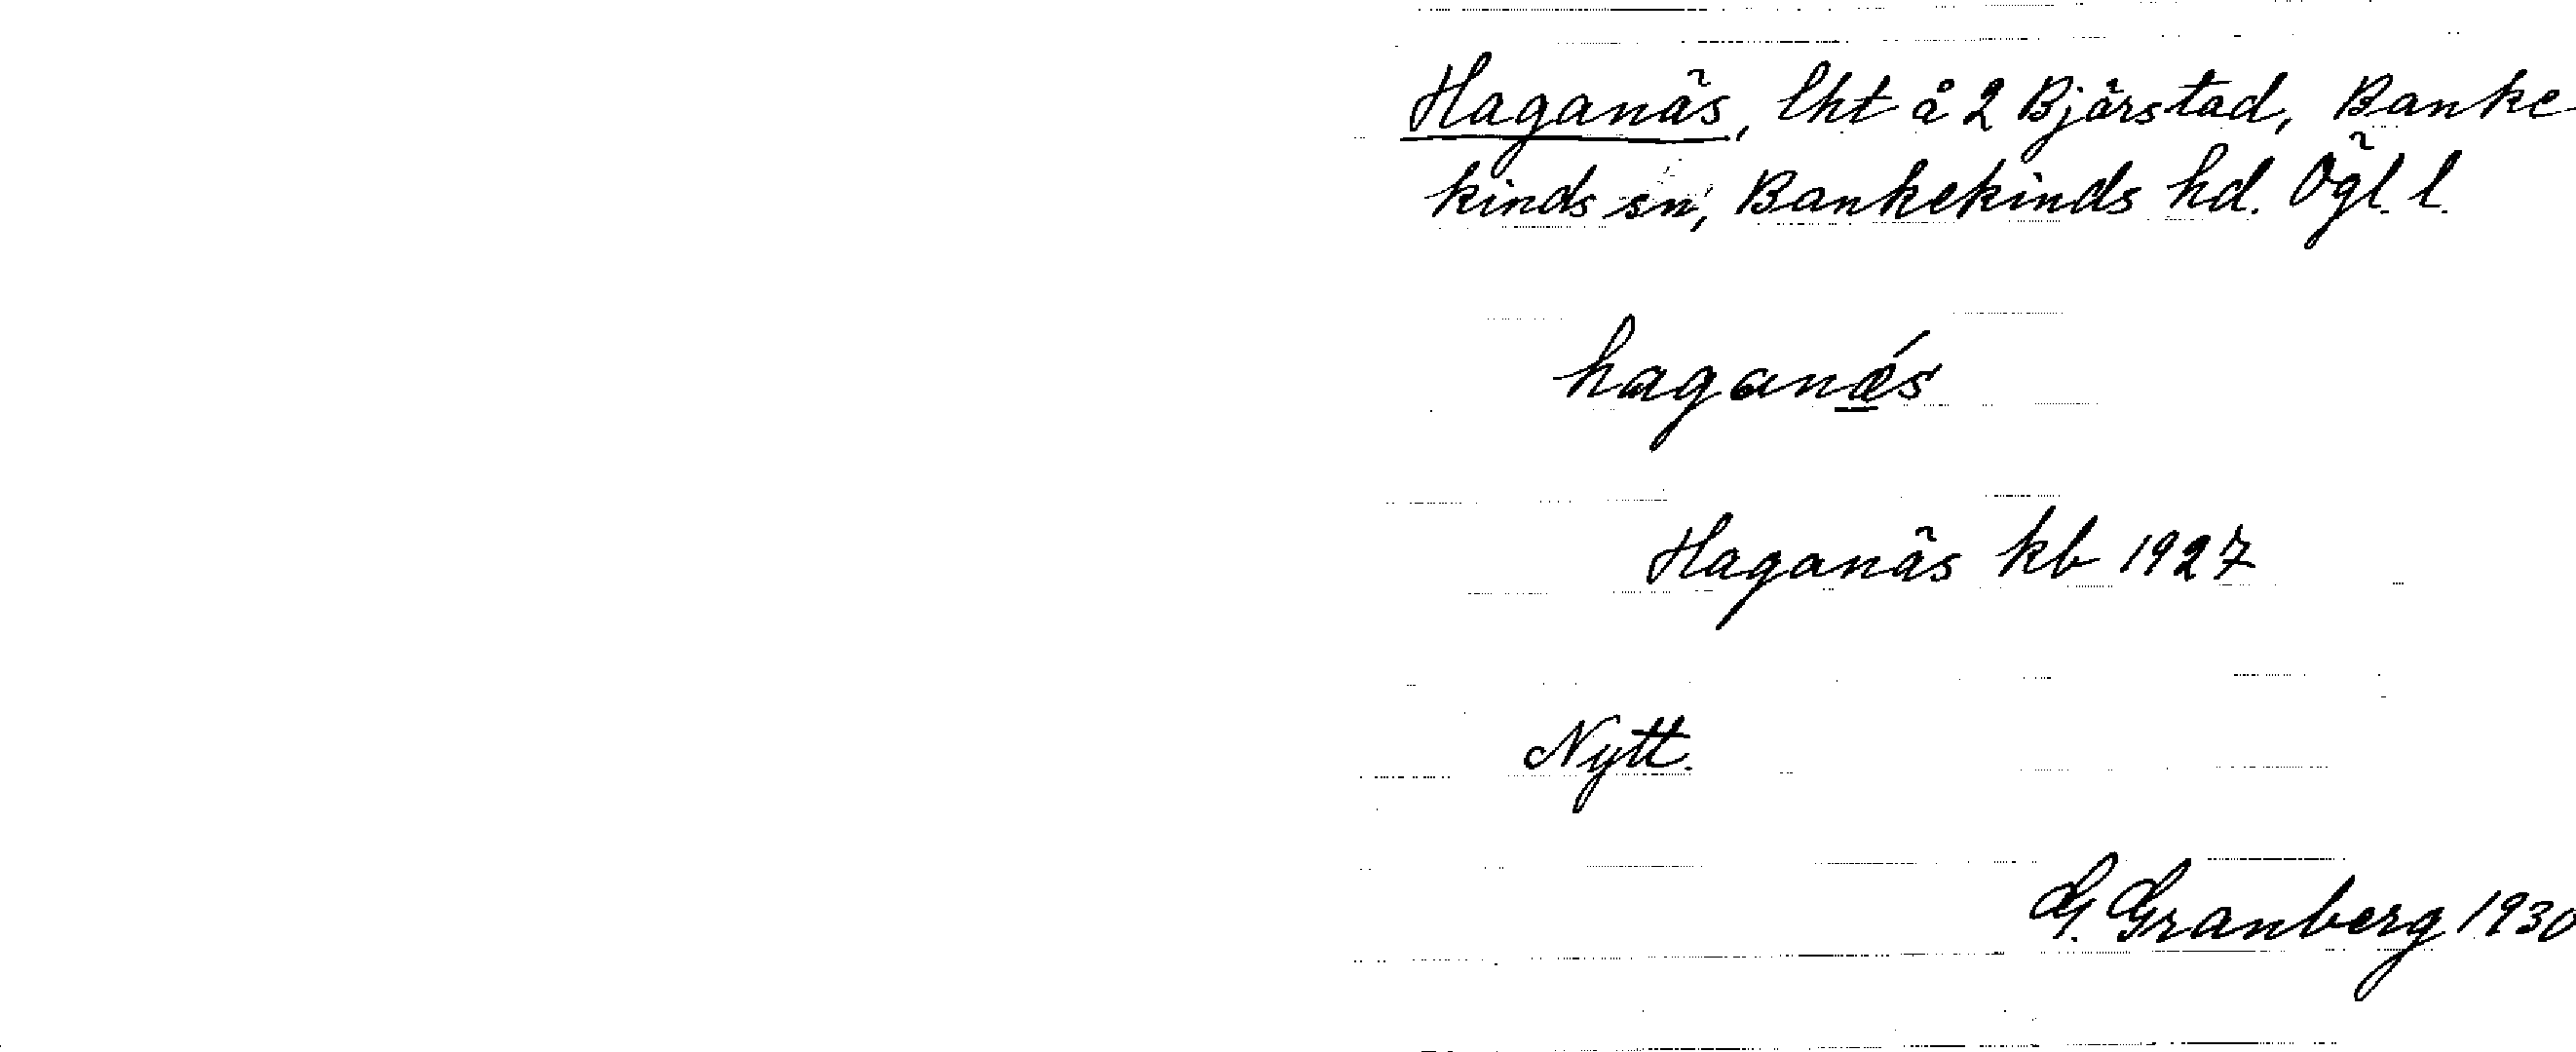 Haganäs, lht å 2 Bjärstad, Banke
kinds sn, Bankekinds hd. Ögl. l.
haganǽs
Haganäs kb 1927
Nytt.
G. Granberg 1930